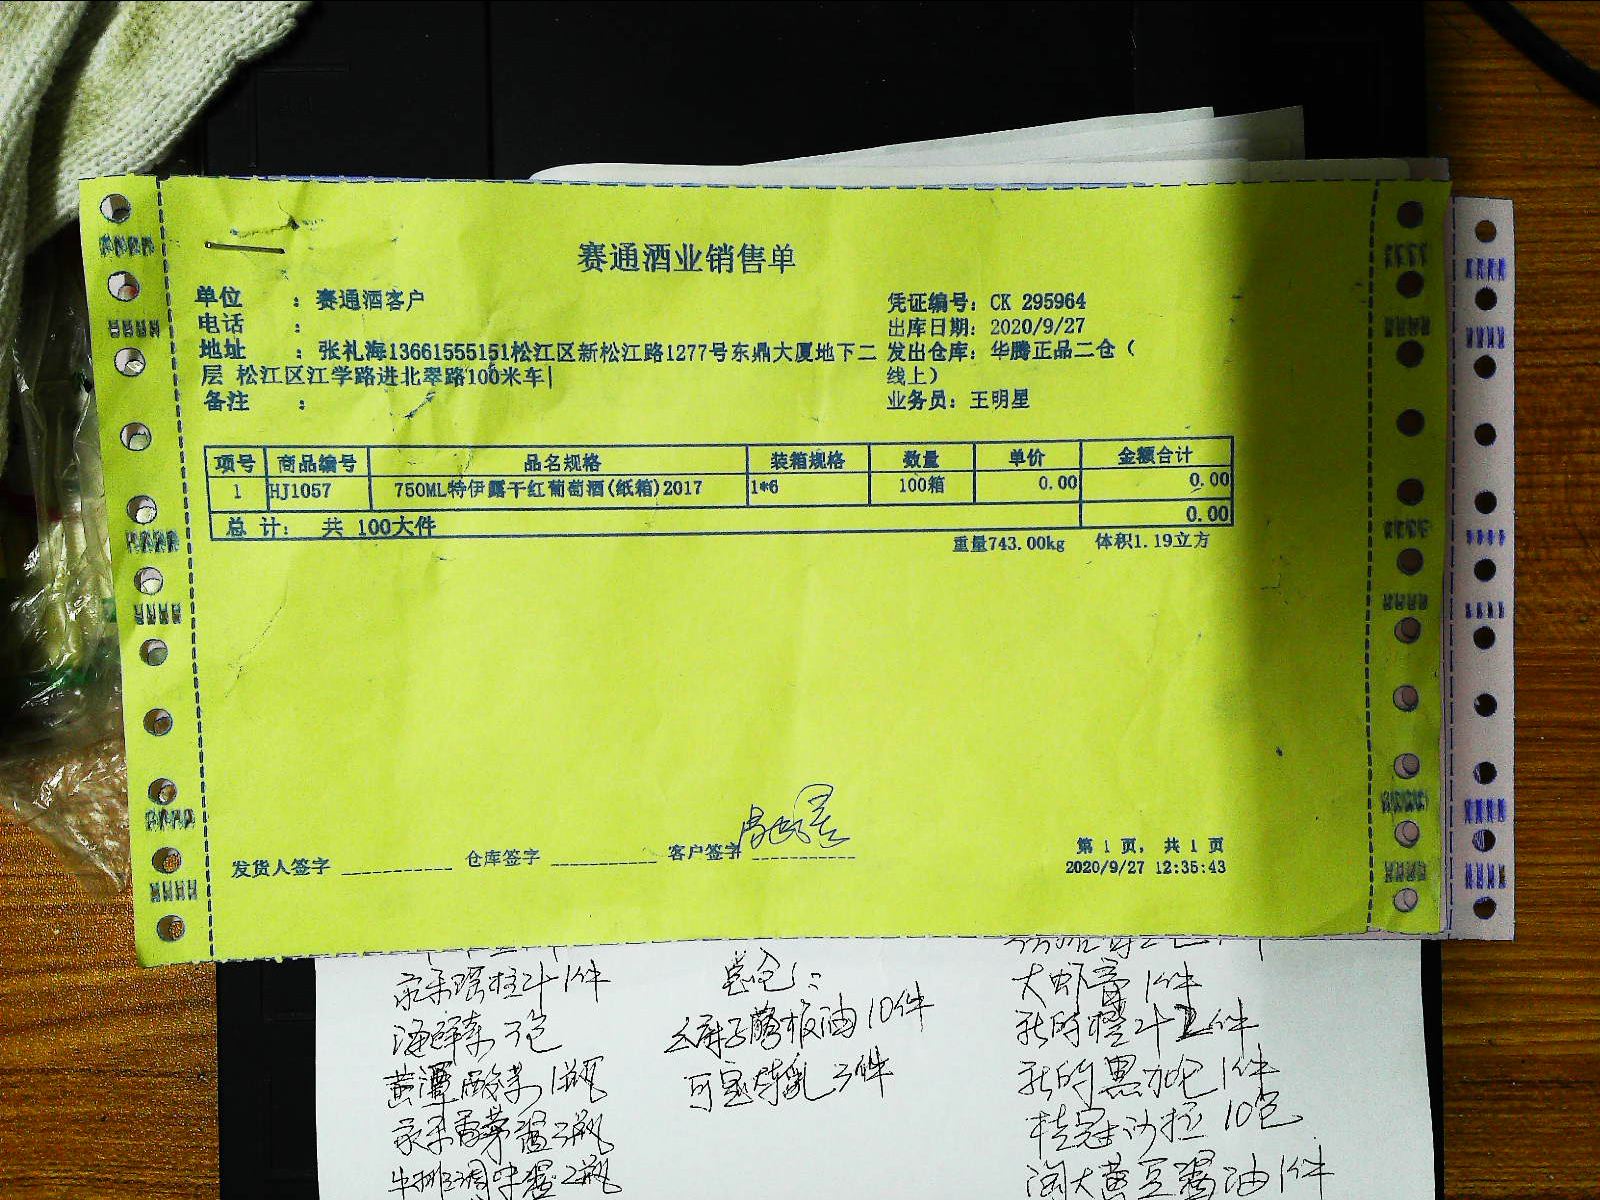 赛通酒业销售单
单位 : 赛通酒客户
凭证编号: CK 295964
电话 :
出库日期: 2020/9/27
地址 : 张礼海13661555151松江区新松江路1277号东鼎大厦地下二
层 松江区江学路进北翠路100米车|
发出仓库: 华腾正品二仓 (
线上)
备注 :
业务员: 王明星
项号 商品编号 品名规格 装箱规格 数量 单价 金额合计
1 HJ1057 750ML特伊露干红葡萄酒(纸箱)2017 1*6 100箱 0.00 0.00
总 计: 共 100大件 0.00
重量743.00kg 体积1.19立方
发货人签字 仓库签字 客户签字
第 1 页, 共 1 页
2020/9/27 12:35:43
1件
海鲜 3包
酸菜1瓶
2瓶
牛排调味酱2瓶
10件
3件
大虾膏 1件
2件
1件
桂冠沙拉 10包
淘大黄豆酱油1件